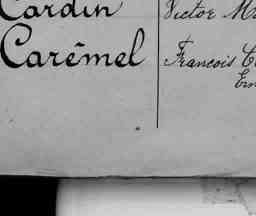 Cardin Victor
Carêmel Francois